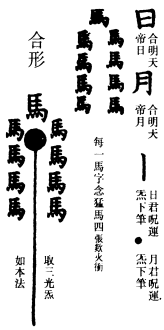 日
合明天
帝日
月
合明天
帝月
日君呪運
炁下筆
月君呪運
炁下筆
馬
馬馬馬馬
馬馬馬馬
每一馬字念猛馬四張欻火衝
合形
馬
馬馬馬馬
馬馬馬馬
取三光炁
如本法